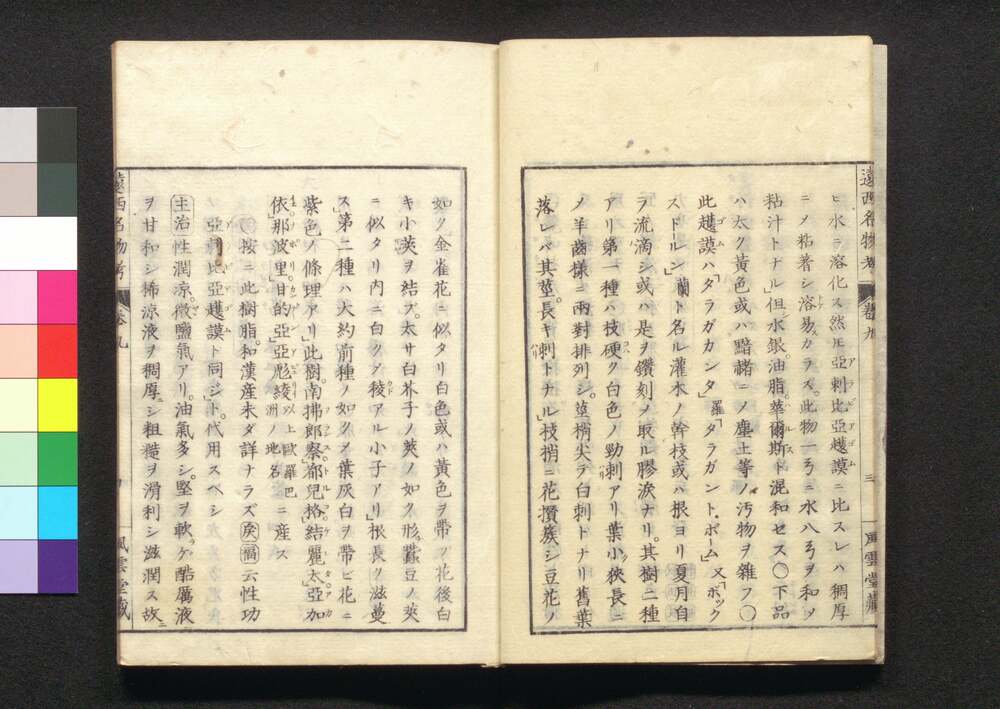 遠西名物考 巻九 三 風雲堂藏
ビ水ニ溶化ス然モ亞剌比亞護謨ニ比スレハ稠厚
ニノ粘着シ溶易カラス此物一弓ニ水八弓ヲ和メ
粘汁トナル」但シ水銀油脂華爾斯ト混和セス〇下品
ハ太ク黃色或ハ黯赭ニノ塵土等ノ汚物ヲ雜フ〇
此護謨ハ「タラガカンタ」羅「タラガント・ボーム」又「ボック
ストールン」蘭ト名ル灌木ノ幹枝或ハ根ヨリ夏月自
ラ流滴シ或ハ是ヲ鑽刻ノ取ル膠淚ナリ其樹二種
アリ第一種ハ枝硬ク白色ノ勁刺アリ葉小ク狹長ニ
ノ羊齒様ニ兩對排列シ莖梢尖ラ白刺トナリ舊葉
落レバ其莖長キ刺トナル」枝梢ニ花攢簇シ豆花ノ
如ク金雀花ニ似タリ白色或ハ黃色ヲ帶ブ花後白
キ小莢ヲ結ブ太サ白芥子ノ莢ノ如ク形蠶豆ノ莢
ニ似タリ内ニ白クノ稜アル小子アリ」根長ク滋蔓
ス第二種ハ大約前種ノ如クノ葉灰白ヲ帶ビ花ニ
紫色ノ條理アリ」此樹南拂郎察都兒格結麗太亞加
依那波里甘的亞亞彪綾以上歐羅巴洲ノ地名ニ産ス
按ニ此樹脂和漢産未ダ詳ナラズ矦福云性功
亞剌比亞護謨ト同ジト代用スベシ
主治性潤涼微鹽氣アリ油氣多シ堅ヲ軟ゲ酷厲液
ヲ甘和シ稀涼液ヲ稠厚シ粗糙ヲ滑利シ滋潤ス故ニ
遠西名物考 巻九 風雲堂藏